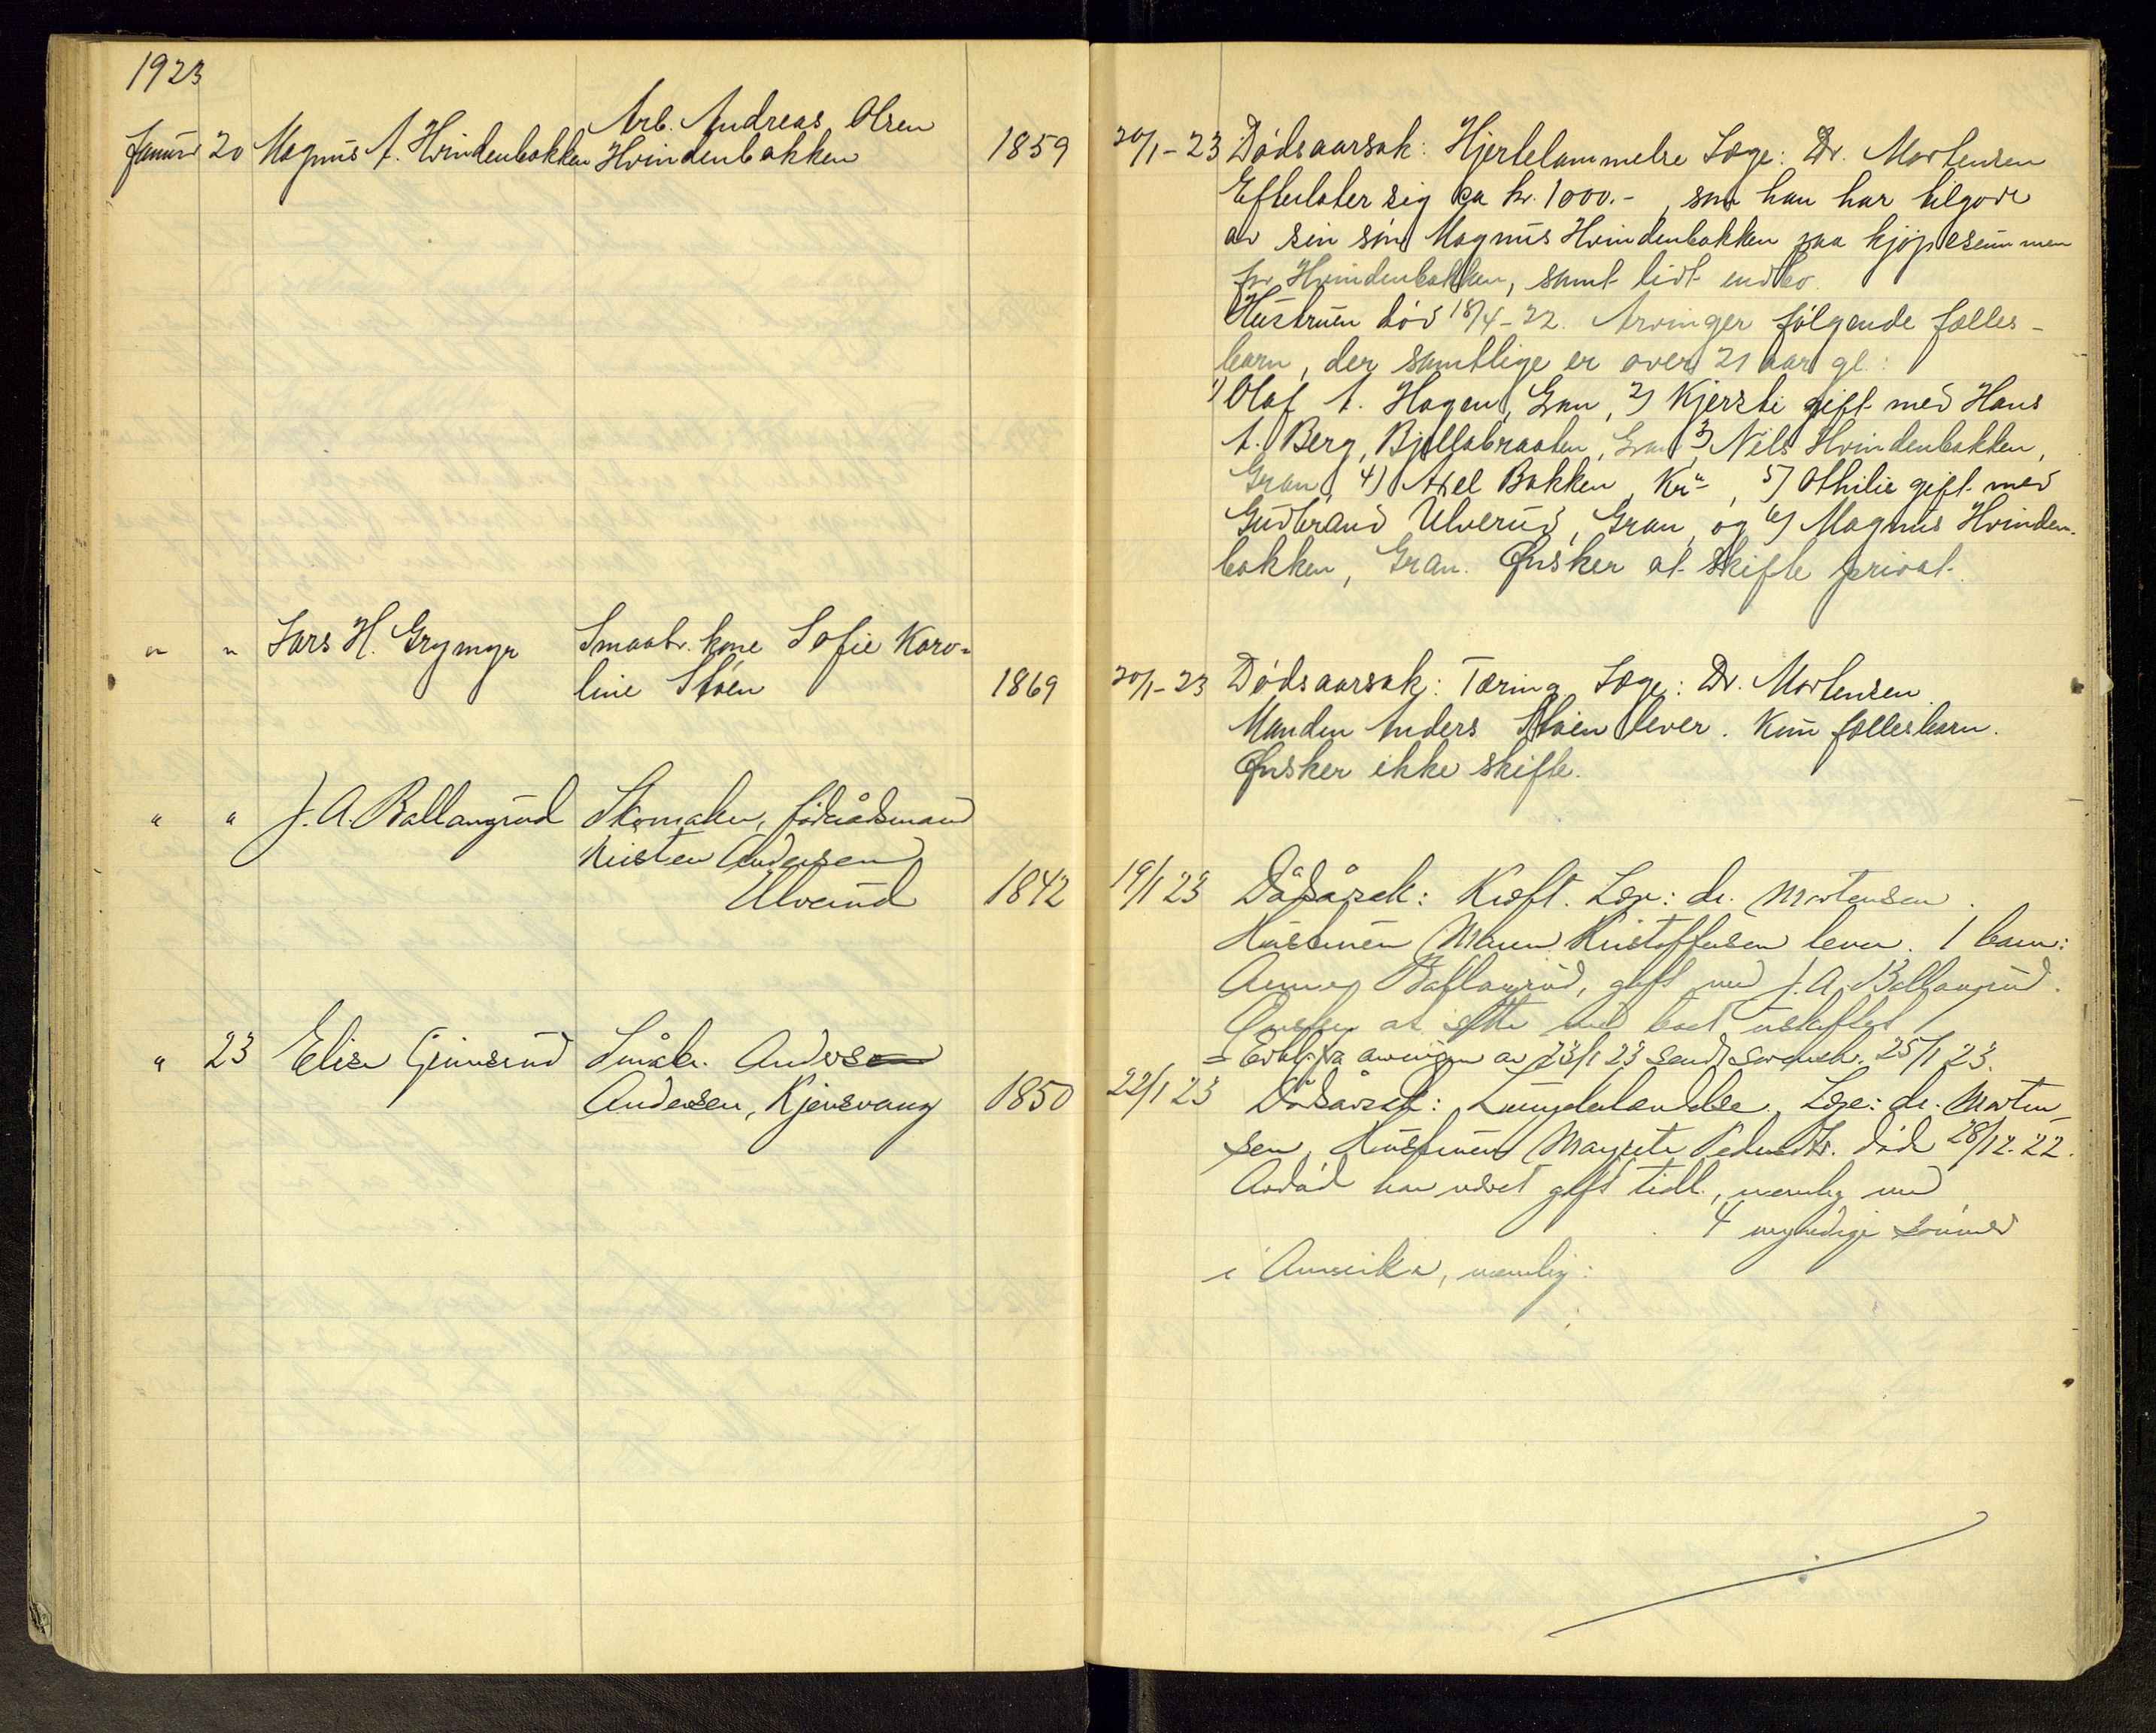 1923
Januar 20 Magnus A. Hvindenbakken Arb. Andreas Olsen
Hvindenbakken 1859
20/1-23 Dødsaarsak: Hjertelammelse Læge: Dr. Mortensen
Efterlater sig ca kr. 1000.-, som han har tilgode
av sin søn Magnus Hvindenbakken paa kjøpesummen
for Hvindenbakken, samt lidt indbo.
Hustruen død 18/4-22. Arvinger følgende fælles-
barn, der samtlige er over 21 aar gl:
1) Olaf A. Hagen, Gran, 2) Kjersti gift med Hans
A. Berg, Bjellabraaten, Gran 3) Nils Hvindenbakken,
Gran, 4) Axel Bakken, Kra, 5) Othilie gift med
Gudbrand Ulverud, Gran, og 6) Magnus Hvinden-
bakken, Gran. Ønsker at skifte privat.
" " Lars H. Grymyr Smaabr. kone Sofie Karo-
line Støen 1869
20/1-23 Dødsaarsak: Tæring Læge: Dr. Mortensen.
Manden Anders Støen lever. Kun fællesbarn.
Ønsker ikke skifte.
" " J. A. Ballangrud Skomaker, føderådsmand
Kristen Andersen
Ulverud 1842
19/1 23 Dødsårsak: Kræft. Læge: dr. Mortensen.
Hustruen Maren Kristoffersen lever. 1 barn:
Ballangrud, gift med J. A. Ballangrud.
Ønsker at sitte med boet uskiftet
= Erklj. fra arvingen av 23/1 23 sendt sorensk. 25/1 23.
" 23 Elise Grinsrud Småbr. Anders
Andersen, Kjørsvang 1850
22/1 23 Dødsårsak: Lungebetændelse. Læge: dr. Morten-
sen. Hustruen Margrete Pedersdtr. død 28/12-22.
Avdød har været gift tidl., nemlig med
4 myndige sønner
i Amerika, nemlig: